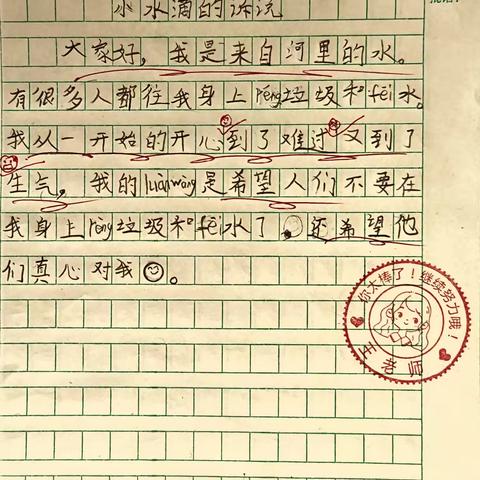 小水滴的诉说
大家好，我是来自河里的水。
有很多人都往我身上rēng垃圾和fèi水。
我从一开始的开心到了难过又到了
生气，我的luànwàng是希望人们不要在
我身上rēng垃圾和fèi水了 还希望他
们真心对我。
你太棒了！继续努力哦！
王老师